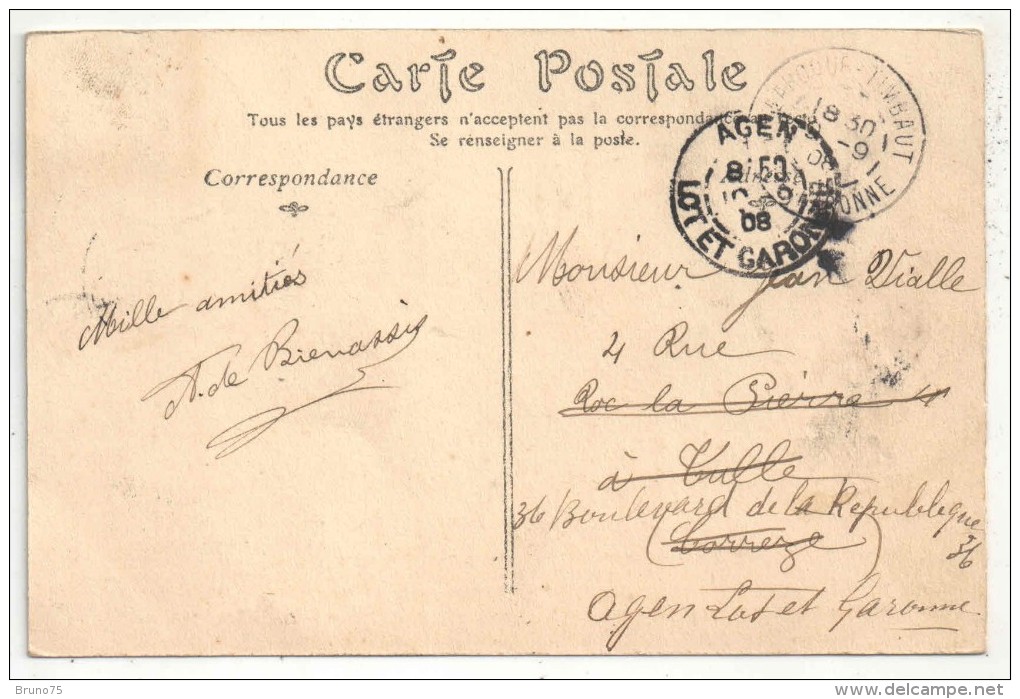 Carte Postale
Tous les pays étrangers n'acceptent pas la correspondance au recto
Se renseigner à la poste.
Correspondance
Adresse
AGEN
8 50
10 - 9
08
LOT ET GARONNE
18 30
- 9
08
Mille amitiés
A. de Bienassis
Monsieur Jean Vialle
4 Rue
Roc la Pierre 4
à Tulle
36 Boulevard de la Republeque
36
(Correze)
Agen Lot et Garonne.
Bruno75
www.delcampe.net